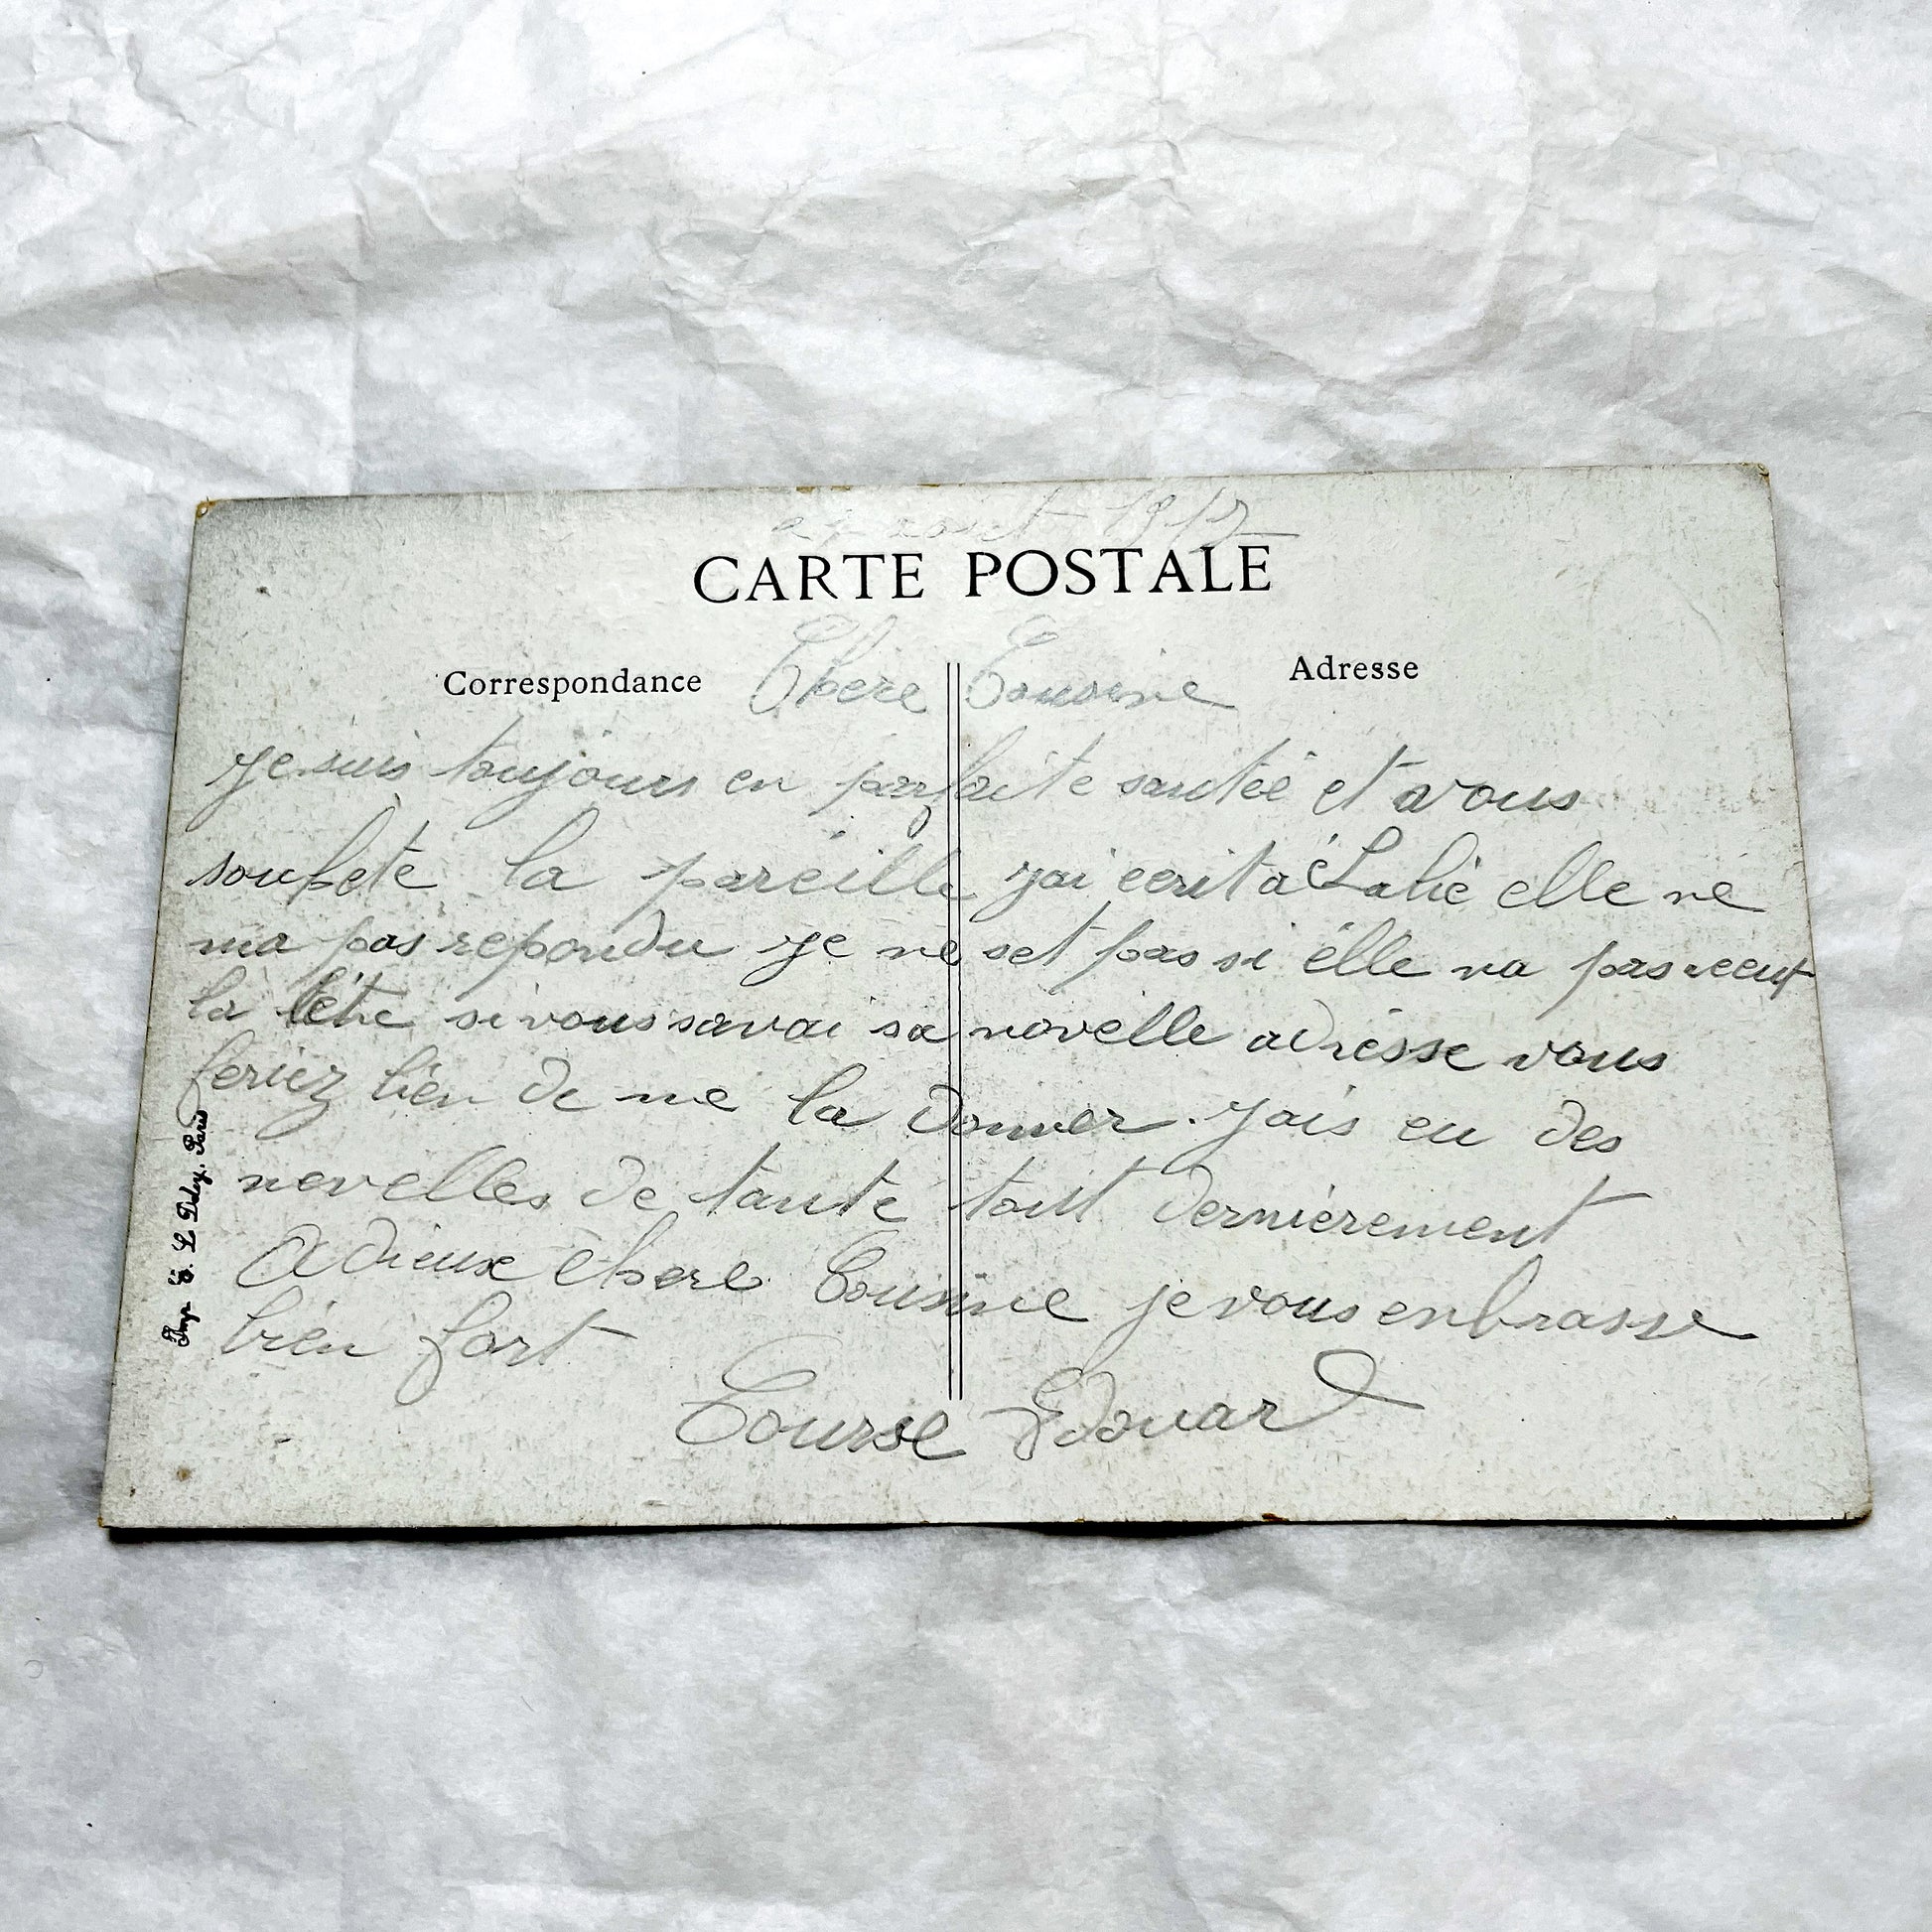 août 191
CARTE POSTALE
Correspondance
Adresse
Chere Cousine
je suis toujours en parfaite santée et vous
souhete la pareille j'ai ecrit a Lalie elle ne
ma pas repondu je ne set pas si elle na pas recut
la letre si vous savai sa novelle adresse vous
feriez bien de me la donner. Jais eu des
novelles de tante tout dernièrement
Adieux chere Cousine je vous enbrasse
bien fort
Course Edouard
Imp. E. L. Deley, Paris